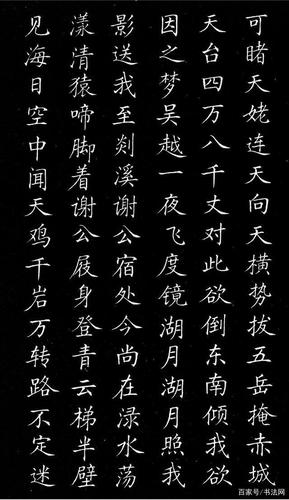 可睹天姥连天向天横势拔五岳掩赤城
天台四万八千丈对此欲倒东南倾我欲
因之梦吴越一夜飞度镜湖月湖月照我
影送我至剡溪谢公宿处今尚在渌水荡
漾清猿啼脚着谢公屐身登青云梯半壁
见海日空中闻天鸡千岩万转路不定迷
百家号/书法网